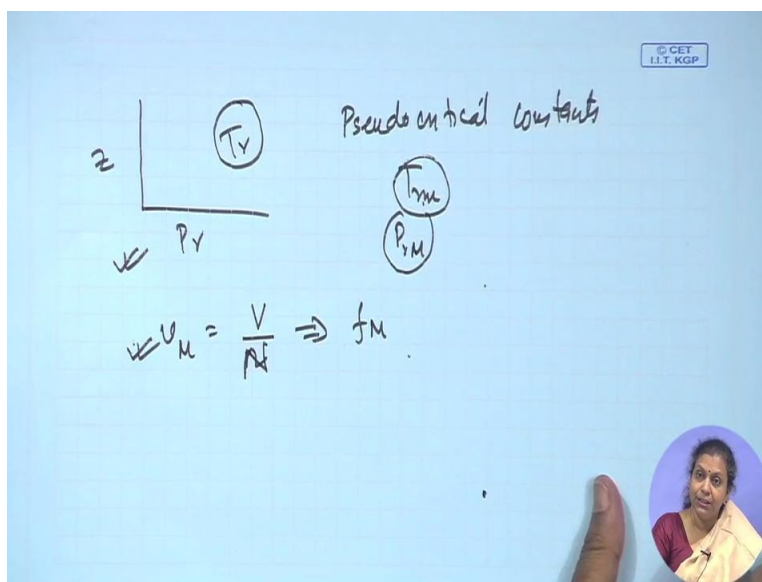 © CET
I.I.T. KGP
Pseudocritical constants
z
Tr
TrM
Pr
PrM
vM = V / ⇒ fM